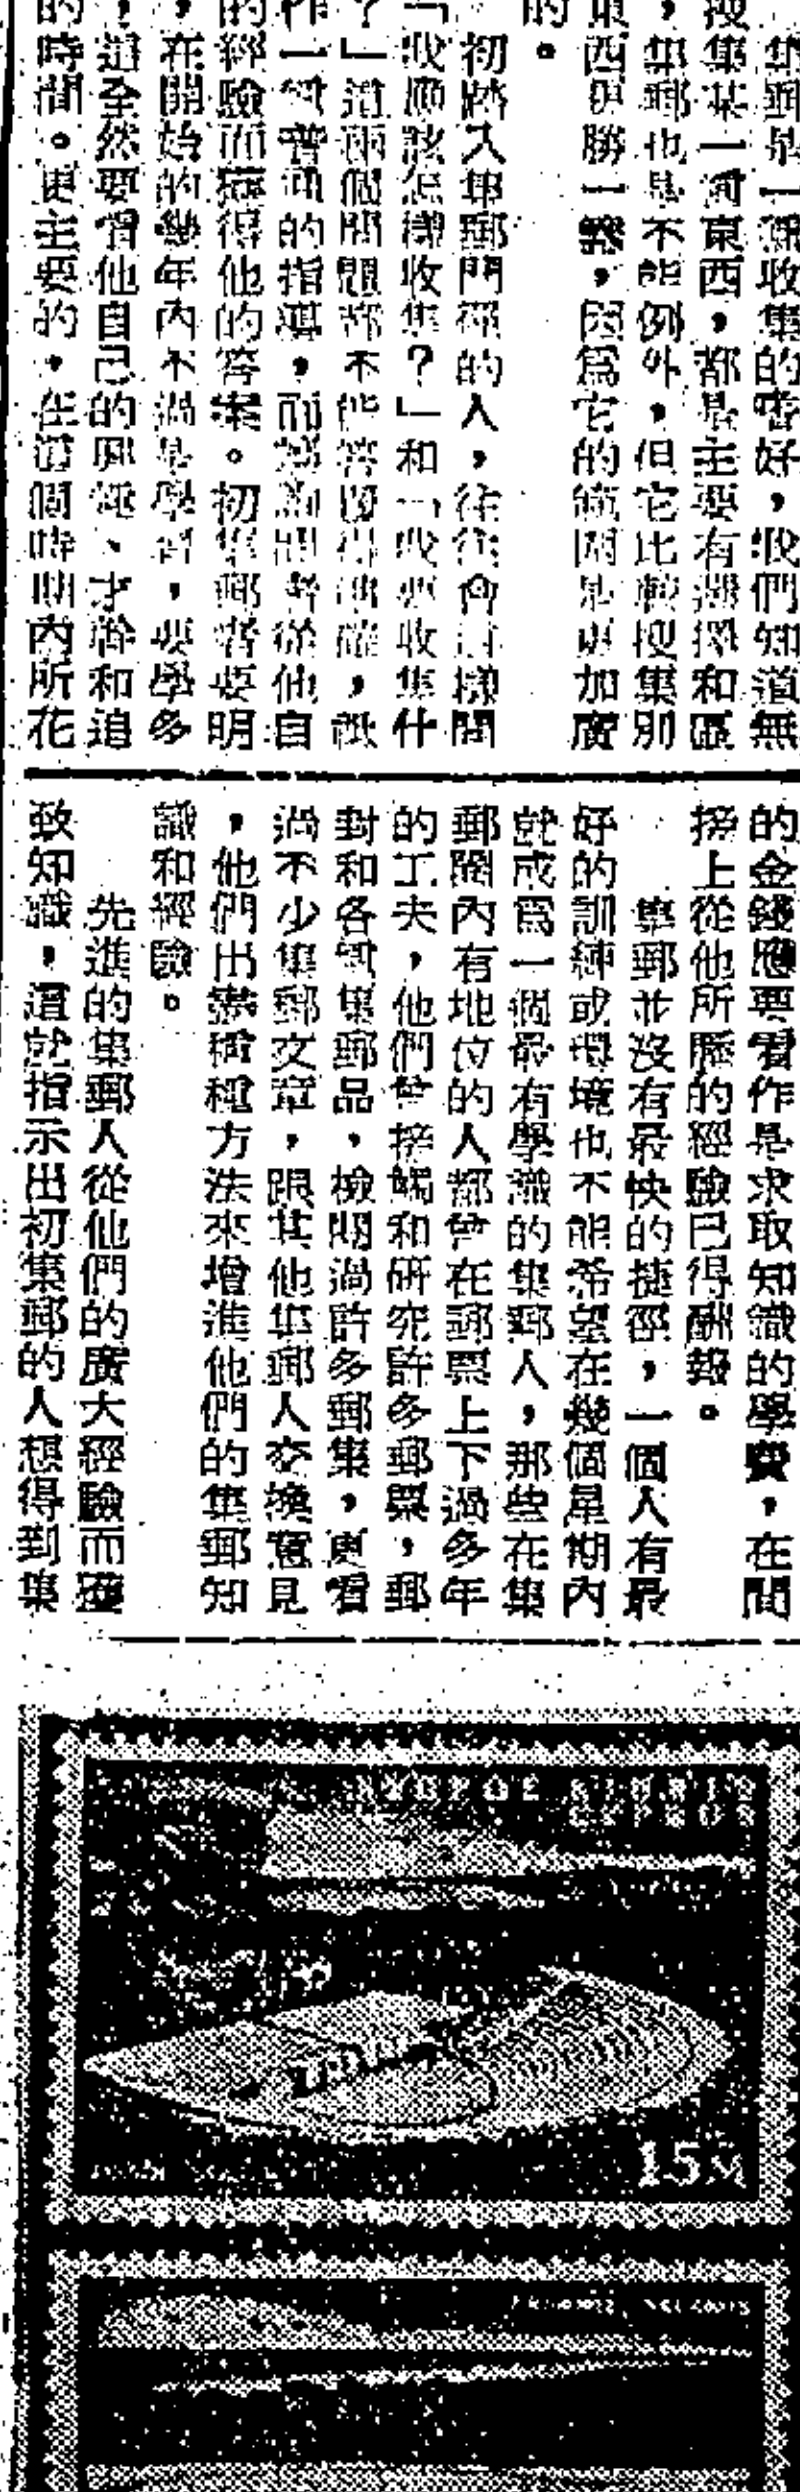 集郵是一種收集的嗜好，我們知道無
搜集某一種東西，都是主要有選擇和區
，集郵也是不能例外，但它比較搜集別
東西更勝一籌，因爲它的範圍是更加廣
的。
初踏入集郵門徑的人，往往會這樣問
「我應該怎樣收集？」和「我要收集什
？」這兩個問題都不能答覆得準確，祇
作一個普通的指導，而讓詢問者從他自
的經驗而獲得他的答案。初集郵者要明
，在開始的幾年內不過是學習，要學多
，這全然要看他自己的興趣、才幹和追
的時間。更主要的，在這個時期內所花
的金錢應要看作是求取知識的學費，在間
接上從他所歷的經驗已得酬報。
集郵並沒有最快的捷徑，一個人有最
好的訓練或環境也不能希望在幾個星期內
就成爲一個最有學識的集郵人，那些在集
郵圈內有地位的人都曾在郵票上下過多年
的工夫，他們曾接觸和研究許多郵票，郵
封和各種集郵品，檢閱過許多郵集，更看
過不少集郵文章，跟其他集郵人交換意見
，他們出盡種種方法來增進他們的集郵知
識和經驗。
先進的集郵人從他們的廣大經驗而獲
致知識，這就指示出初集郵的人想得到集
CYPRUS
15M